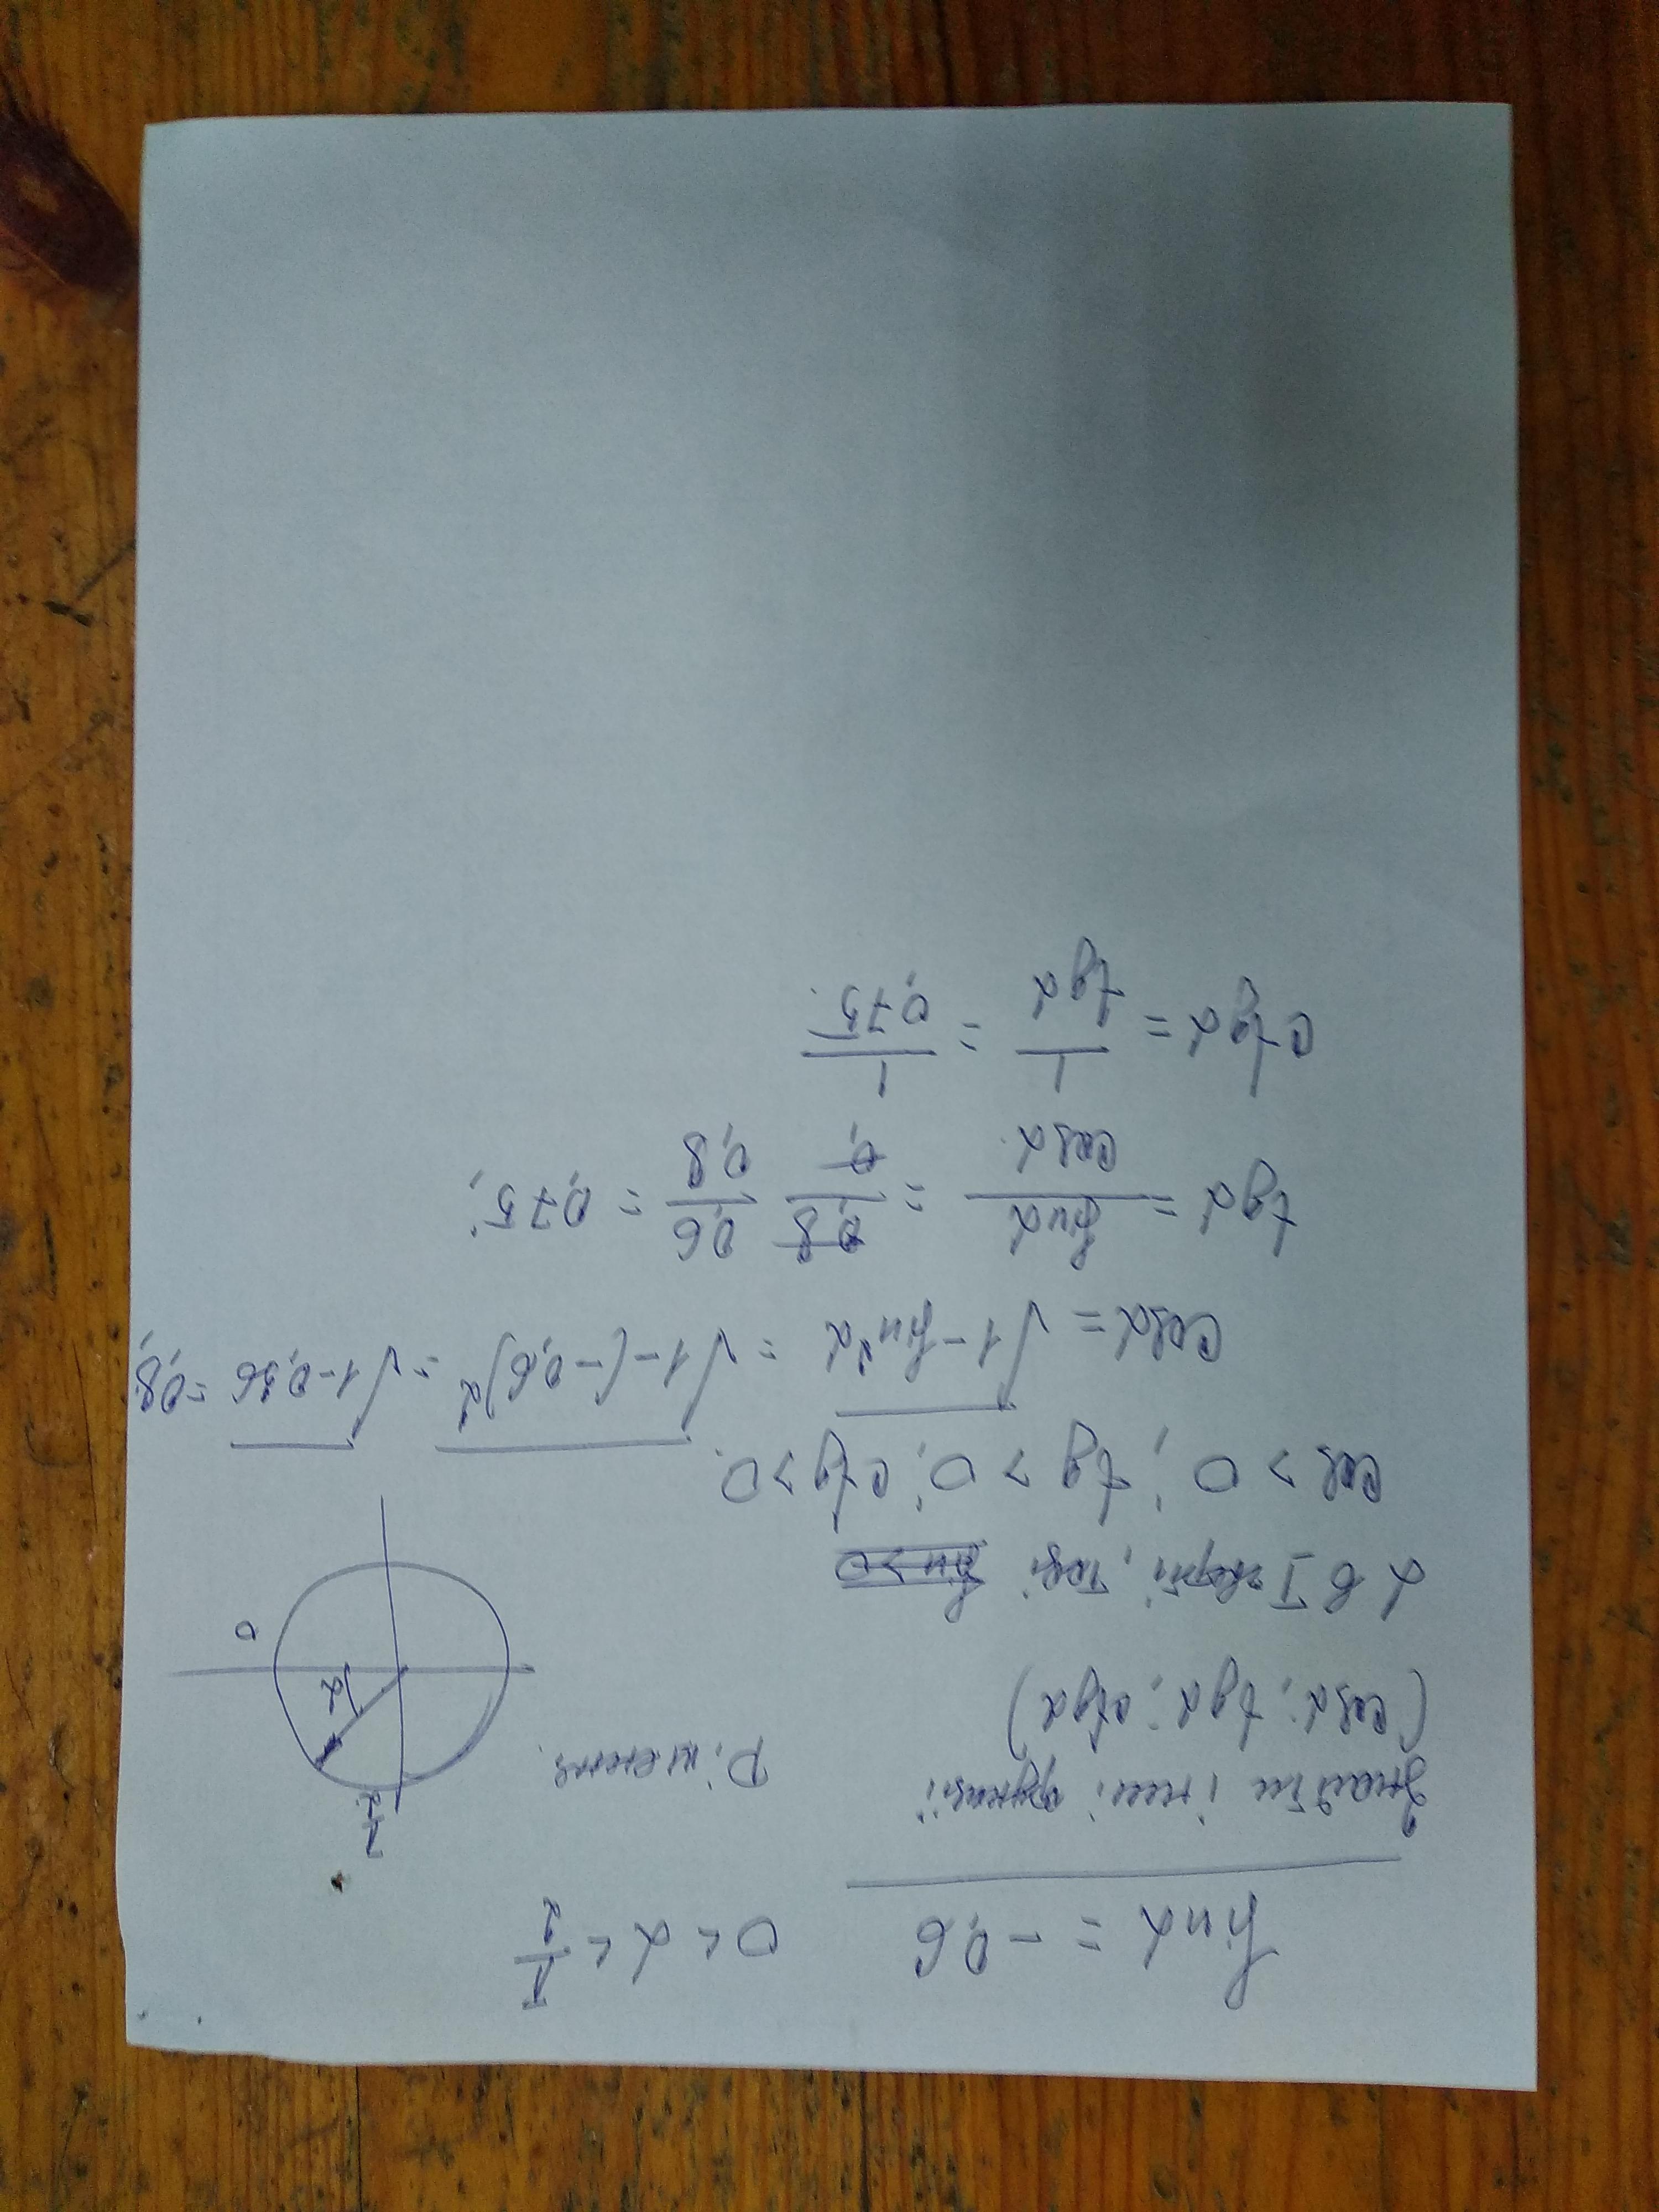 sin α = -0,6 0 < α < π/2
Знайти інші функції
(cos α; tg α; ctg α)
Розв'язання.
π/2
α
0
α в I чверті, тоді ~~sin > 0~~
cos > 0; tg > 0; ctg > 0.
cos α = √(1 - sin² α) = √(1 - (-0,6)²) = √(1 - 0,36) = 0,8;
tg α = sin α / cos α = ~~0,8 / 0,~~ 0,6 / 0,8 = 0,75;
ctg α = 1 / tg α = 1 / 0,75.